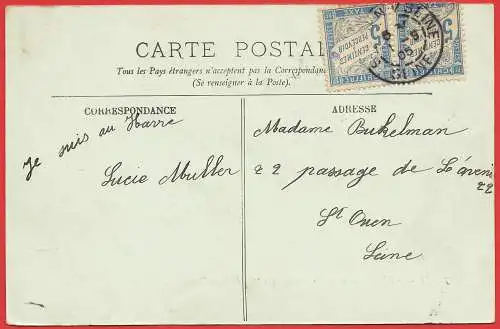 CARTE POSTALE
Tous les Pays étrangers n'acceptent pas la Correspondance
(Se renseigner à la Poste).
CORRESPONDANCE
Je suis au Havre
Lucie Muller
ADRESSE
Madame Bukelman
22 passage de L'aveni
22
St Ouen
Seine
5
CENTIMES
À PERCEVOIR
5
CENTIMES
SEINE